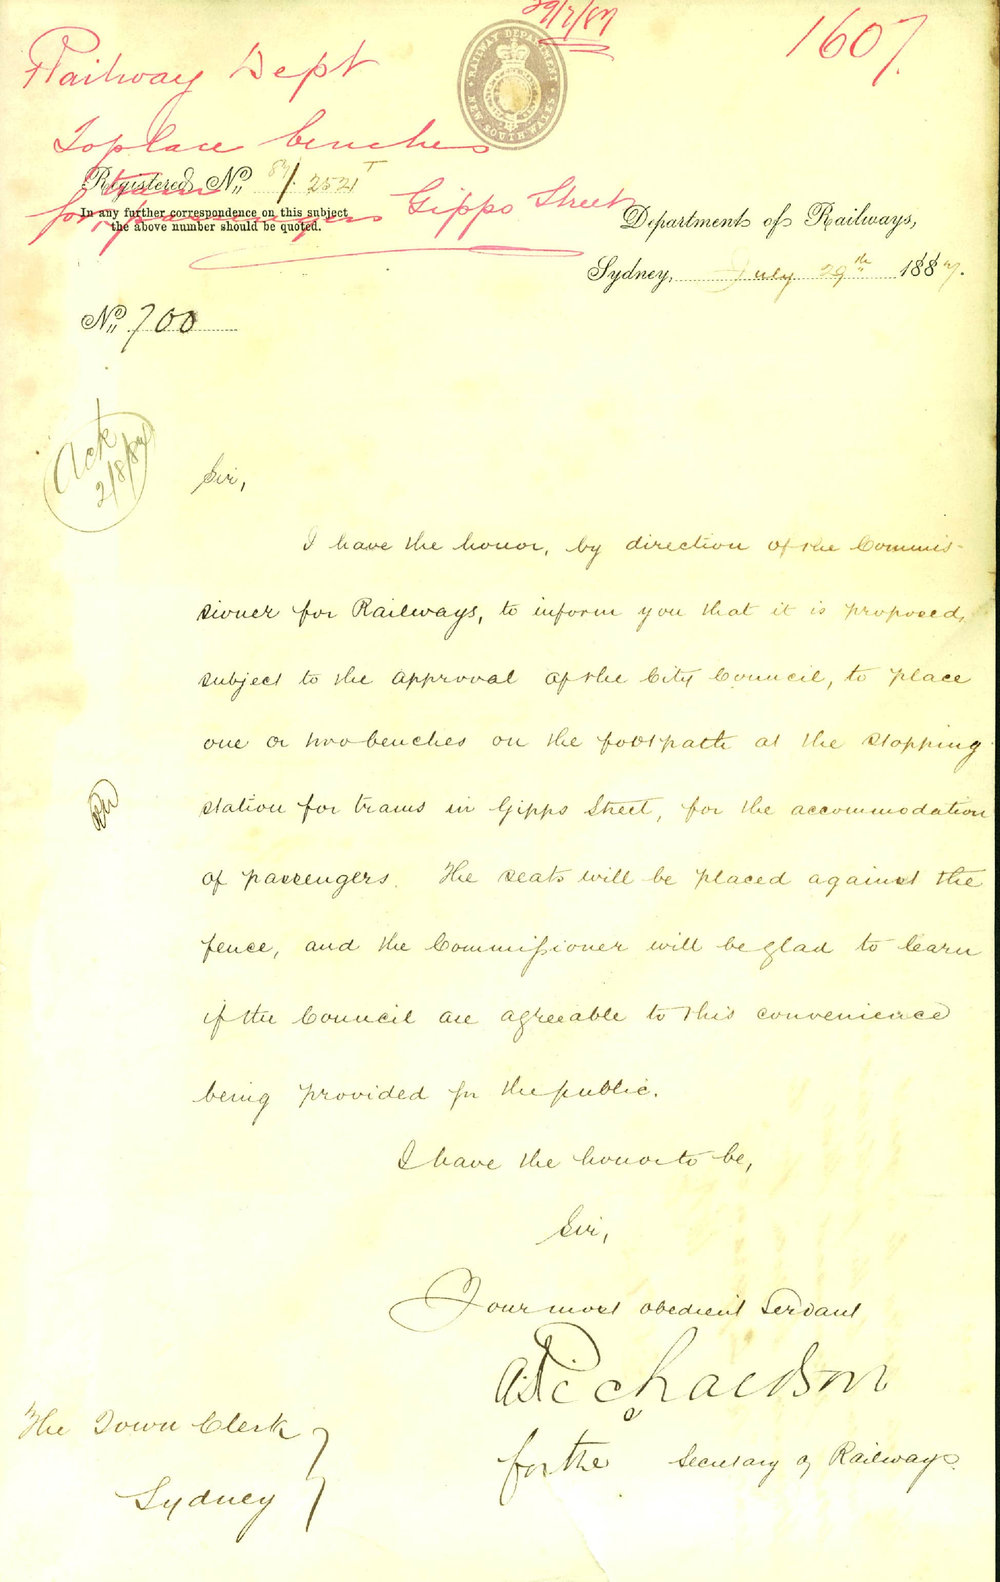 29/7/87
1607.
RAILWAY DEPARTMENT
NEW SOUTH WALES
Railway Dept
To place benches
for tram
passengers Gipps Street
Registered No. 87/2521 T
In any further correspondence on this subject
the above number should be quoted.
Department of Railways,
Sydney, July 29th 1887.
No. 700
Ack
2/8/87
Sir,
I have the honor, by direction of the Commis-
sioner for Railways, to inform you that it is proposed,
subject to the approval of the City Council, to place
one or two benches on the footpath at the stopping
station for trams in Gipps Street, for the accommodation
of passengers. The seats will be placed against the
fence, and the Commissioner will be glad to learn
if the Council are agreeable to this convenience
being provided for the public.
I have the honor to be,
Sir,
Your most obedient Servant
Richardson
for the Secretary of Railways.
The Town Clerk
Sydney